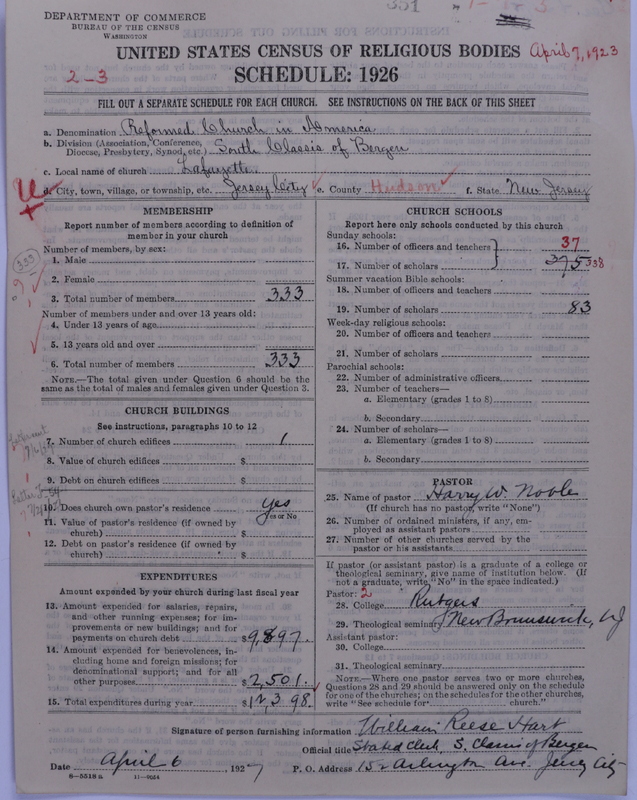 DEPARTMENT OF COMMERCE
BUREAU OF THE CENSUS
WASHINGTON
351
UNITED STATES CENSUS OF RELIGIOUS BODIES
April 7, 1923
2-3
SCHEDULE: 1926
FILL OUT A SEPARATE SCHEDULE FOR EACH CHURCH. SEE INSTRUCTIONS ON THE BACK OF THIS SHEET
a. Denomination Reformed Church in America
b. Division (Association, Conference, Diocese, Presbytery, Synod, etc.) South Classis of Bergen
c. Local name of church Lafayette
d. City, town, village, or township, etc. Jersey City e. County Hudson f. State New Jersey
MEMBERSHIP
Report number of members according to definition of
member in your church
Number of members, by sex:
333
1. Male
2. Female
3. Total number of members 333
Number of members under and over 13 years old:
4. Under 13 years of age
5. 13 years old and over
6. Total number of members 333
NOTE.—The total given under Question 6 should be the
same as the total of males and females given under Question 3.
CHURCH BUILDINGS
See instructions, paragraphs 10 to 12
7. Number of church edifices 1
8. Value of church edifices $
9. Debt on church edifices $
10. Does church own pastor's residence yes
Yes or No
11. Value of pastor's residence (if owned by
church) $
12. Debt on pastor's residence (if owned by
church) $
EXPENDITURES
Amount expended by your church during last fiscal year
13. Amount expended for salaries, repairs,
and other running expenses; for im-
provements or new buildings; and for
payments on church debt $9,897.
14. Amount expended for benevolences, in-
cluding home and foreign missions; for
denominational support; and for all
other purposes $2,501.
15. Total expenditures during year $12,398.
CHURCH SCHOOLS
Report here only schools conducted by this church
Sunday schools:
16. Number of officers and teachers 37
17. Number of scholars 375 338
Summer vacation Bible schools:
18. Number of officers and teachers
19. Number of scholars 83
Week-day religious schools:
20. Number of officers and teachers
21. Number of scholars
Parochial schools:
22. Number of administrative officers
23. Number of teachers—
a. Elementary (grades 1 to 8)
b. Secondary
24. Number of scholars—
a. Elementary (grades 1 to 8)
b. Secondary
PASTOR
25. Name of pastor Harry W. Noble
(If church has no pastor, write "None")
26. Number of ordained ministers, if any, em-
ployed as assistant pastors
27. Number of other churches served by the
pastor or his assistants
If pastor (or assistant pastor) is a graduate of a college or
theological seminary, give name of institution below. (If
not a graduate, write "No" in the space indicated.)
Pastor: 2
28. College Rutgers
29. Theological seminary New Brunswick, NJ
Assistant pastor:
30. College
31. Theological seminary
NOTE.—Where one pastor serves two or more churches,
Questions 28 and 29 should be answered only on the schedule
for one of the churches; on the schedules for the other churches,
write "See schedule for church."
Signature of person furnishing information William Reese Hart
Official title Stated Clerk, S. Classis of Bergen
Date April 6, 1927 P. O. Address 152 Arlington Ave. Jersey City
8-5518 a 11-9054